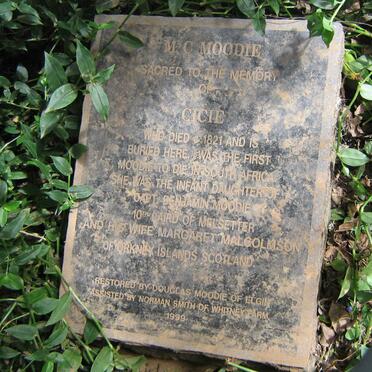 M. C MOODIE
SACRED TO THE MEMORY
OF
CICIE
WHO DIED 1821 AND IS
BURIED HERE. WAS THE FIRST
MOODIE TO DIE IN SOUTH AFRICA
SHE WAS THE INFANT DAUGHTER OF
CAPT. BENJAMIN MOODIE
10TH LAIRD OF MELSETTER
AND HIS WIFE MARGARET MALCOLMSON
OF ORKNEY ISLANDS SCOTLAND
RESTORED BY DOUGLAS MOODIE OF ELGIN
ASSISTED BY NORMAN SMITH OF WHITNEY FARM
1999